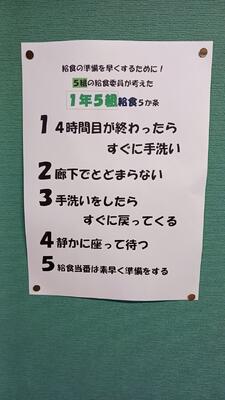 給食の準備を早くするために！
5組の給食委員が考えた
1年5組給食5か条
1 4時間目が終わったら
すぐに手洗い
2 廊下でとどまらない
3 手洗いをしたら
すぐに戻ってくる
4 静かに座って待つ
5 給食当番は素早く準備をする